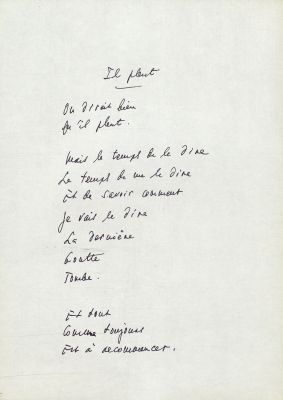 Il pleut
On dirait bien
Qu'il pleut.
Mais le temps de le dire
Le temps de me le dire
Et de savoir comment
Je vais le dire
La dernière
Goutte
Tombe.
Et tout
Comme toujours
Est à recommencer.